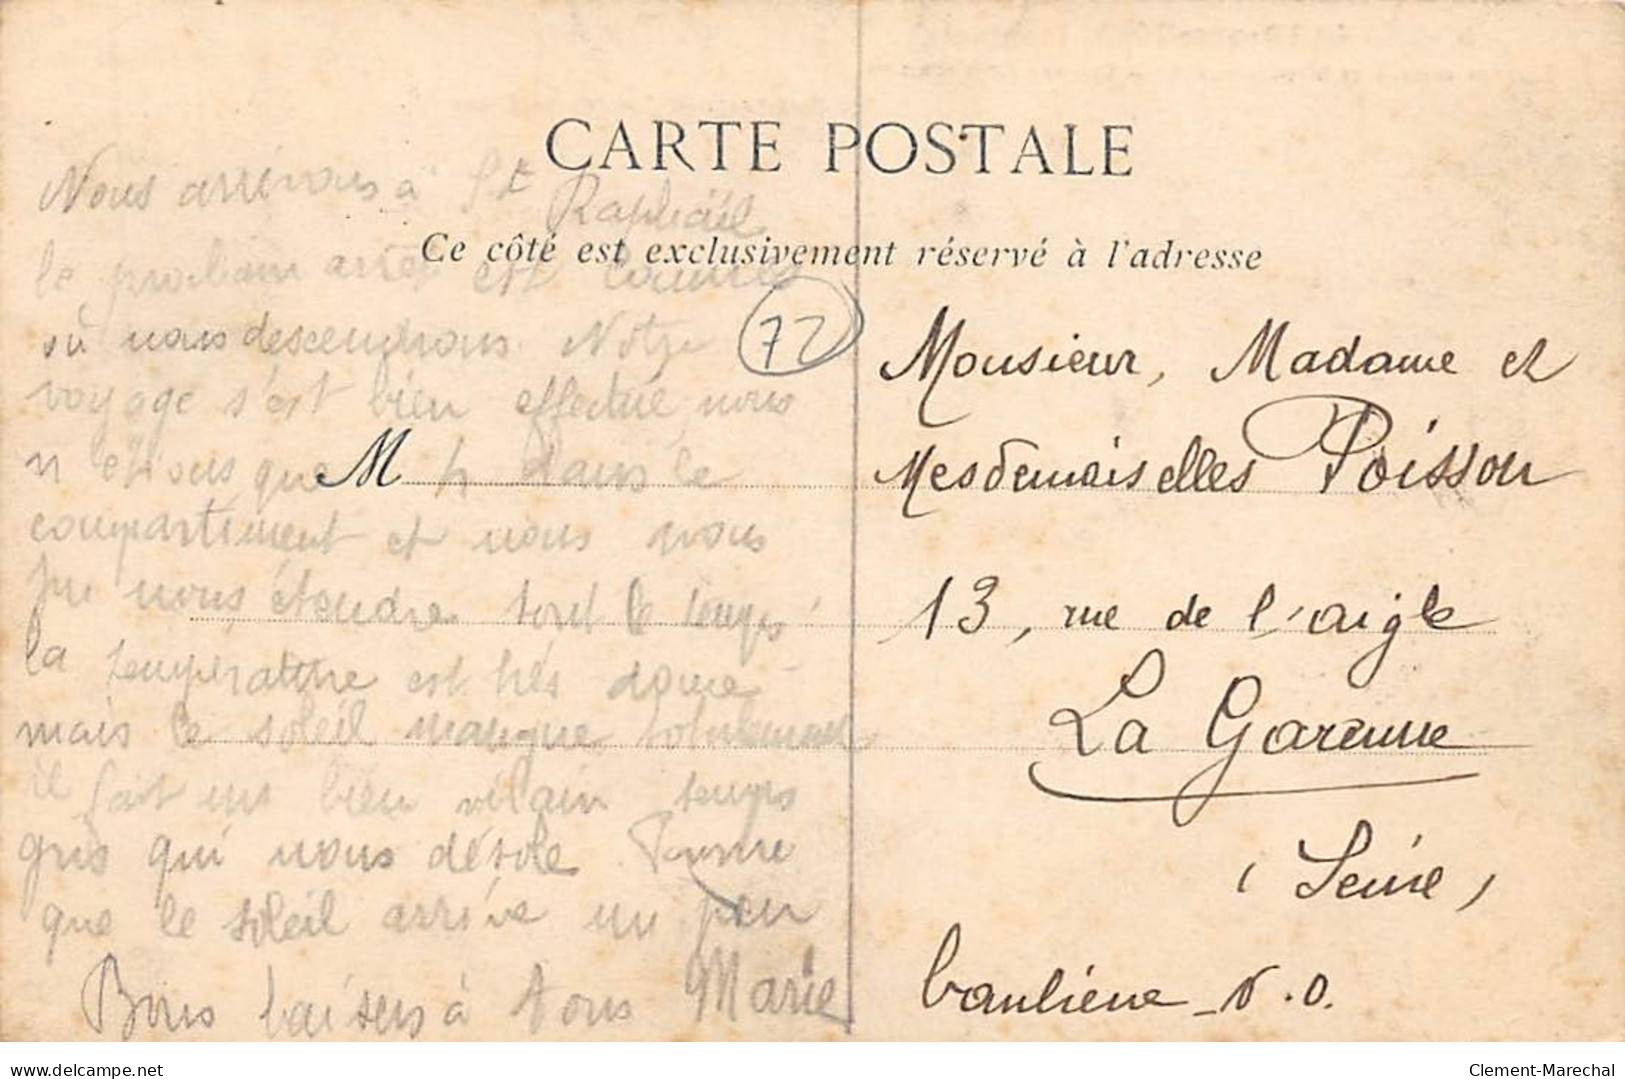 CARTE POSTALE
Ce côté est exclusivement réservé à l'adresse
Nous arrivons à St
Raphaël
le prochain arrêt est Cannes
où nous descendrons. Notre
voyage s'est bien effectué, nous
n'étions que 4 dans le
compartiment et nous avons
pu nous étendre tout le temps
la température est très douce
mais le soleil manque totalement
il fait un bien vilain temps
gris qui nous désole. Pourvu
que le soleil arrive un peu
Bons baisers à tous Marie
72
M
Monsieur, Madame et
Mesdemoiselles Poisson
13, rue de l'aigle
La Garenne
(Seine)
banlieue N.O.
delcampe.net
Clement-Marechal